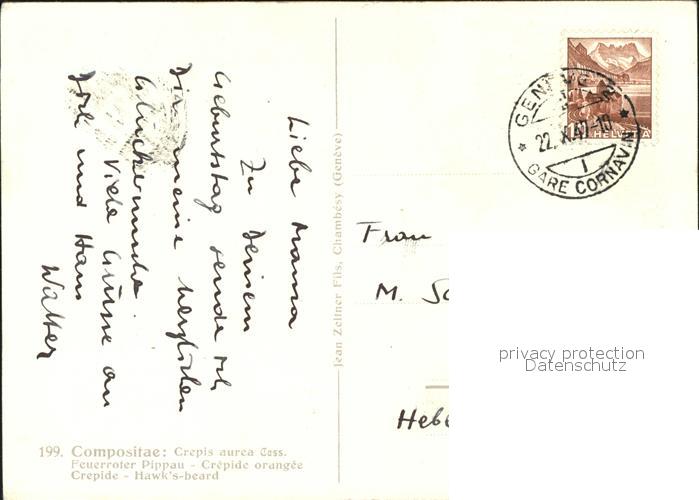 Liebe Mama
Zu Deinem
Geburtstag sende ich
Dir meine herzlichen
Glückwünsche
Viele Grüsse an
und Hans
Walter
199. Compositae: Crepis aurea Cass.
Feuerroter Pippau - Crépide orangée
Crepide - Hawk's-beard
Jean Zellner Fils, Chambésy (Genève)
HELVETIA
22. X. 47-10
1
GARE CORNAVIN
Frau
M. Sc
Hebe
privacy protection
Datenschutz